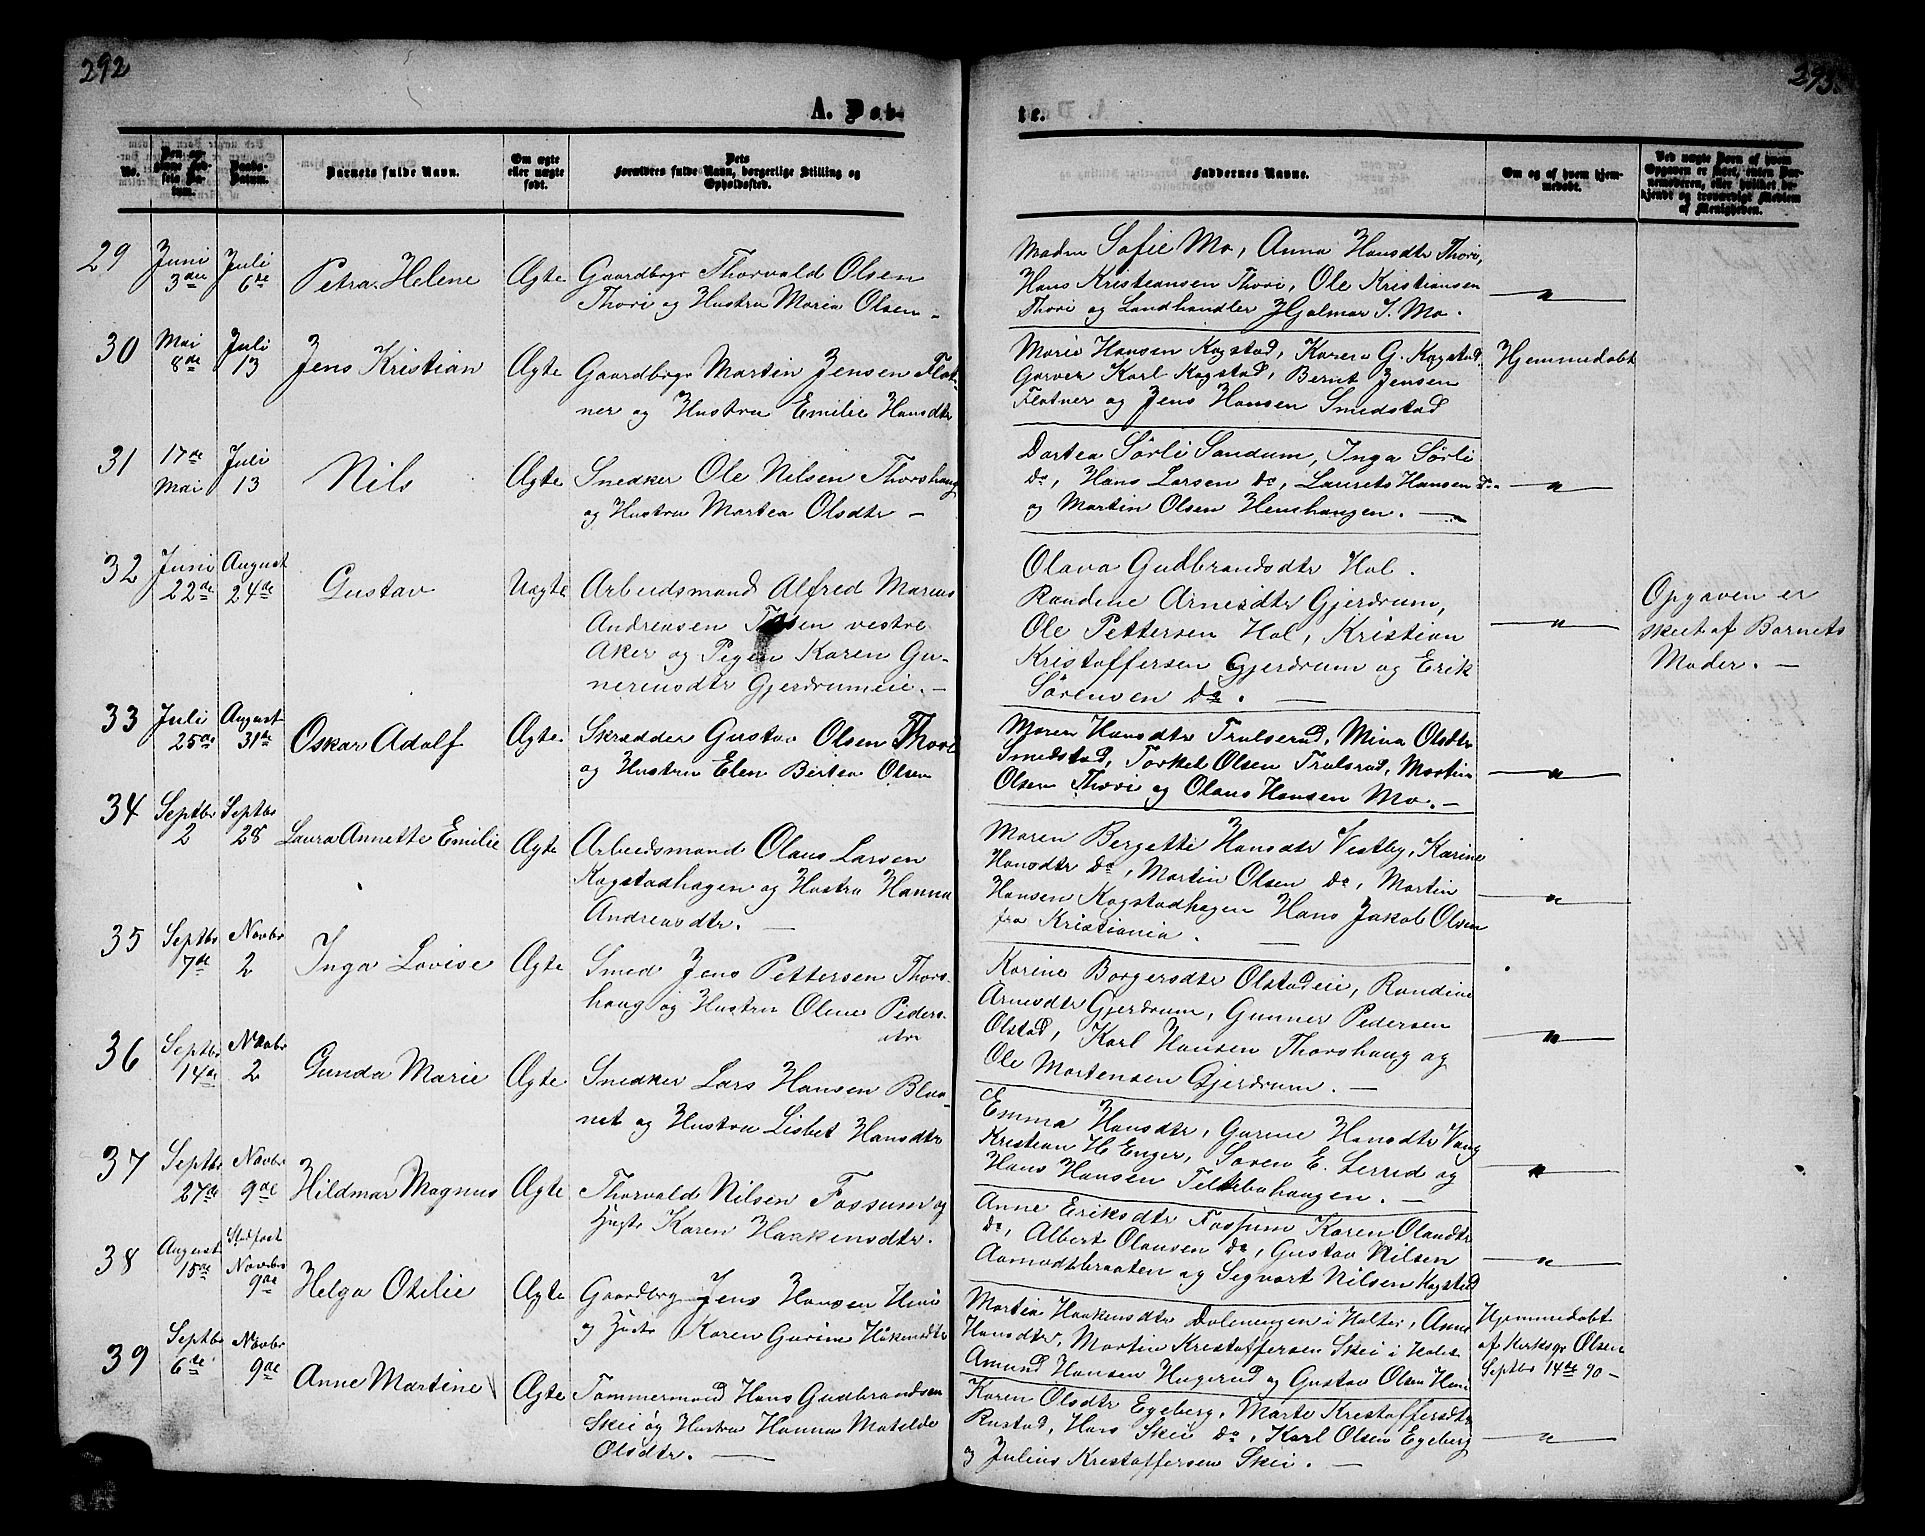 292
293
A. Dob-
te.
No.
Barnets fulde Navn.
Om ægte
eller uægte
født.
Dets
Forældres fulde Navn, borgerlige Stilling og
Opholdssted.
Faddernes Navne.
Om og af hvem hjem-
medøbt.
Ved uægte Børn af hvem
Opgaven er skeet, enten Jor-
demoderen, eller hvilket be-
kjendt og troværdigt Medlem
af Menigheden.
29
Juni
3die
Juli
6te
Petra Helene
Ægte
Gaardbrgr Thorvald Olsen
Thori og Hustru Maria Olsen
Madm Sofie Mo, Anna Hansdtr Thori,
Hans Kristiansen Thori, Ole Kristiansen
Thori og Landhandler Hjalmar J. Mo.
"
30
Mai
8de
Juli
13
Jens Kristian
Ægte
Gaardbrgr Martin Jensen Flat-
ner og Hustru Emilie Hansdtr
Marie Hansen Kogstad, Karen G. Kogstad,
Garver Karl Kogstad, Bernt Jensen
Flatner og Jens Hansen Smedstad
Hjemmedøbt
31
17de
Mai
Juli
13
Nils
Ægte
Snedker Ole Nilsen Thorshaug
og Hustru Martea Olsdtr -
Dortea Sörli Sandum, Inga Sörli
do, Hans Larsen do, Laurits Hansen do
og Martin Olsen Henshaugen. -
"
32
Juni
22de
August
24de
Gustav
Uægte
Arbeidsmand Alfred Marius
Andreasen vestre
Aker og Pigen Karen Gu-
nereusdtr Gjerdrumeie. -
Olava Gudbrandsdtr Hol.
Randine Arnesdtr Gjerdrum,
Ole Pettersen Hol, Kristian
Kristoffersen Gjerdrum og Erik
Sörensen do. -
"
Opgaven er
skeet af Barnets
Moder. -
33
Juli
25de
August
31te
Oskar Adolf
Ægte
Skrædder Gustav Olsen Thori
og Hustru Elen Birtea Olsen
Maren Hansdtr Trulserud, Mina Olsdtr
Smedstad, Torkel Olsen Trulsrud, Martin
Olsen Thori og Olaus Hansen Mo. -
"
34
Septbr
2
Septbr
28
Laura Annette Emilie
Ægte
Arbeidsmand Olaus Larsen
Kogstadhagen og Hustru Hanna
Andreasdtr. -
Maren Bergette Hansdtr Vestby, Karine
Hansdtr do, Martin Olsen do, Martin
Hansen Kogstadhagen Hans Jakob Olsen
fra Kristiania. -
"
35
Septbr
7de
Novbr
2
Inga Lovise
Ægte
Smed Jens Pettersen Thors-
haug og Hustru Oline Peders-
dtr
Karine Borgersdtr Olstadeie, Randine
Arnesdtr Gjerdrum, Gunner Pedersen
Olstad, Karl Hansen Thorshaug og
Ole Mortensen Gjerdrum. -
"
36
Septbr
14de
Novbr
2
Gunda Marie
Ægte
Snedker Lars Hansen
og Hustru Lisbet Hansdtr
Emma Hansdtr, Gurine Hansdtr Vang
Kristian H Enger, Soren E. Lerud og
Hans Hansen
"
37
Septbr
27de
Novbr
9de
Hildmar Magnus
Ægte
Thorvald Nilsen Fossum og
Hustr Karen Haakensdtr.
Anne Eriksdtr Fossum Karen Olausdtr
do, Albert Olausen do, Gustav Nilsen
Aamodtbraaten og Segvart Nilsen Kogstad
"
38
August
15de
Novbr
9de
Helga Otilie
Ægte
Gaardbrg Jens Hansen Hœni
og Hustr Karen Gurine Håkensdtr
Martia Haakensdtr Dalenengen i Holter, Anne
Hansdtr, Martin Kristoffersen Skei i Holter
Amund Hansen Hugerud og Gustav Olsen
Hjemmedøbt
af Kirksgr Olsen
Septbr 14de 90 -
39
Septbr
6te
Novbr
9de
Anne Martine
Ægte
Tømmermand Hans Gudbrandsen
Skei og Hustru Hanna Matilde
Olsdtr. -
Karen Olsdtr Egeberg, Marte Kristoffersdtr
Rustad, Hans Skei do, Karl Olsen Egeberg
og Julius Kristoffersen Skei. -
"